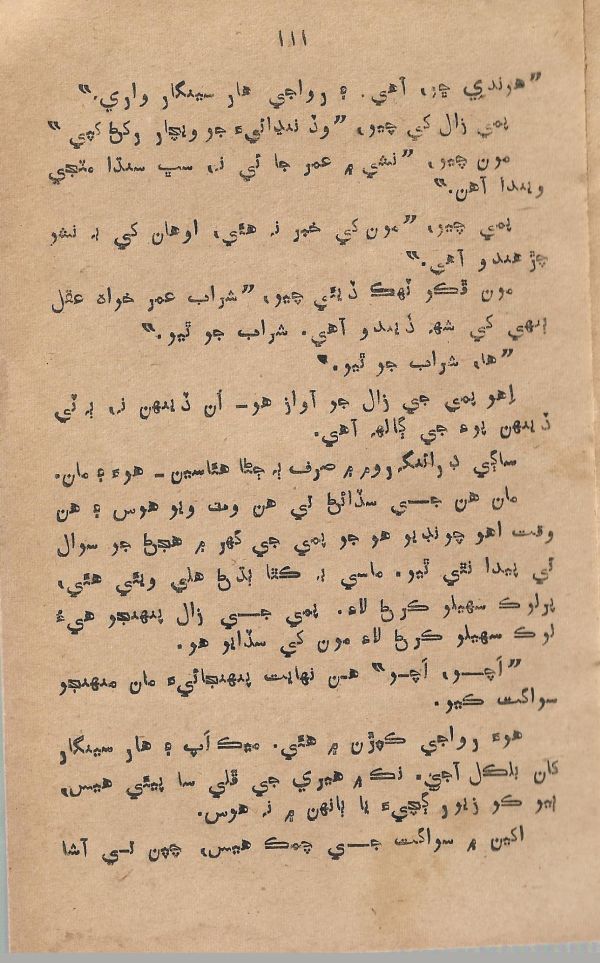 ۱۱۱
”هوندي ڇو، آهي. ۽ رواجي هار سينگار واري.“
پمي زال کي چيو، ”وڏ ننڍائيءَ جو ويچار رکڻ کپي“
مون چيو، ”نشي ۾ عمر جا ئي نہ، سڀ سنڌا مٽجي
ويندا آهن.“
پمي چيو، ”مون کي خبر نہ هئي، اوهان کي بہ نشو
چڙهندو آهي.“
مون ٿڪو ٽهڪ ڏيئي چيو، ”شراب عمر خواه عقل
ٻنهي کي شهہ ڏيندو آهي. شراب جو ٿيو.“
”ها، شراب جو ٿيو.“
اِهو پمي جي زال جو آواز هو ـ اُن ڏينهن نہ، ٻہ ٽي
ڏينهن پوءِ جي ڳالهہ آهي.
ساڳي ڊرائنگ روم ۾ صرف ٻہ ڄڻا هئاسين ـ هوءَ ۽ مان.
مان هن جي سڏائڻ تي هن وٽ ويو هوس ۽ هن
وقت اهو چونڊيو هو جو پمي جي گهر ۾ هجڻ جو سوال
ئي پيدا نٿي ٿيو. ماسي بہ ڪٿا ٻڌڻ هلي ويئي هئي،
پرلوڪ سهيلو ڪرڻ لاءِ. پمي جي زال پنهنجو هيءُ
لوڪ سهيلو ڪرڻ لاءِ مون کي سڏايو هو.
”اَچو، اَچو“ هن نهايت پنهنجائيءَ مان منهنجو
سواگت ڪيو.
هوءَ رواجي ڪپڙن ۾ هئي. ميڪ اَپ ۽ هار سينگار
کان بلڪل آجي. نڪ ۾ هيري جي ڦلي سا پيئي هيس،
ٻيو ڪو زيور ڳچيءَ يا ٻانهن ۾ نہ هوس.
اکين ۾ سواگت جي چمڪ هيس، چپن تي آشا